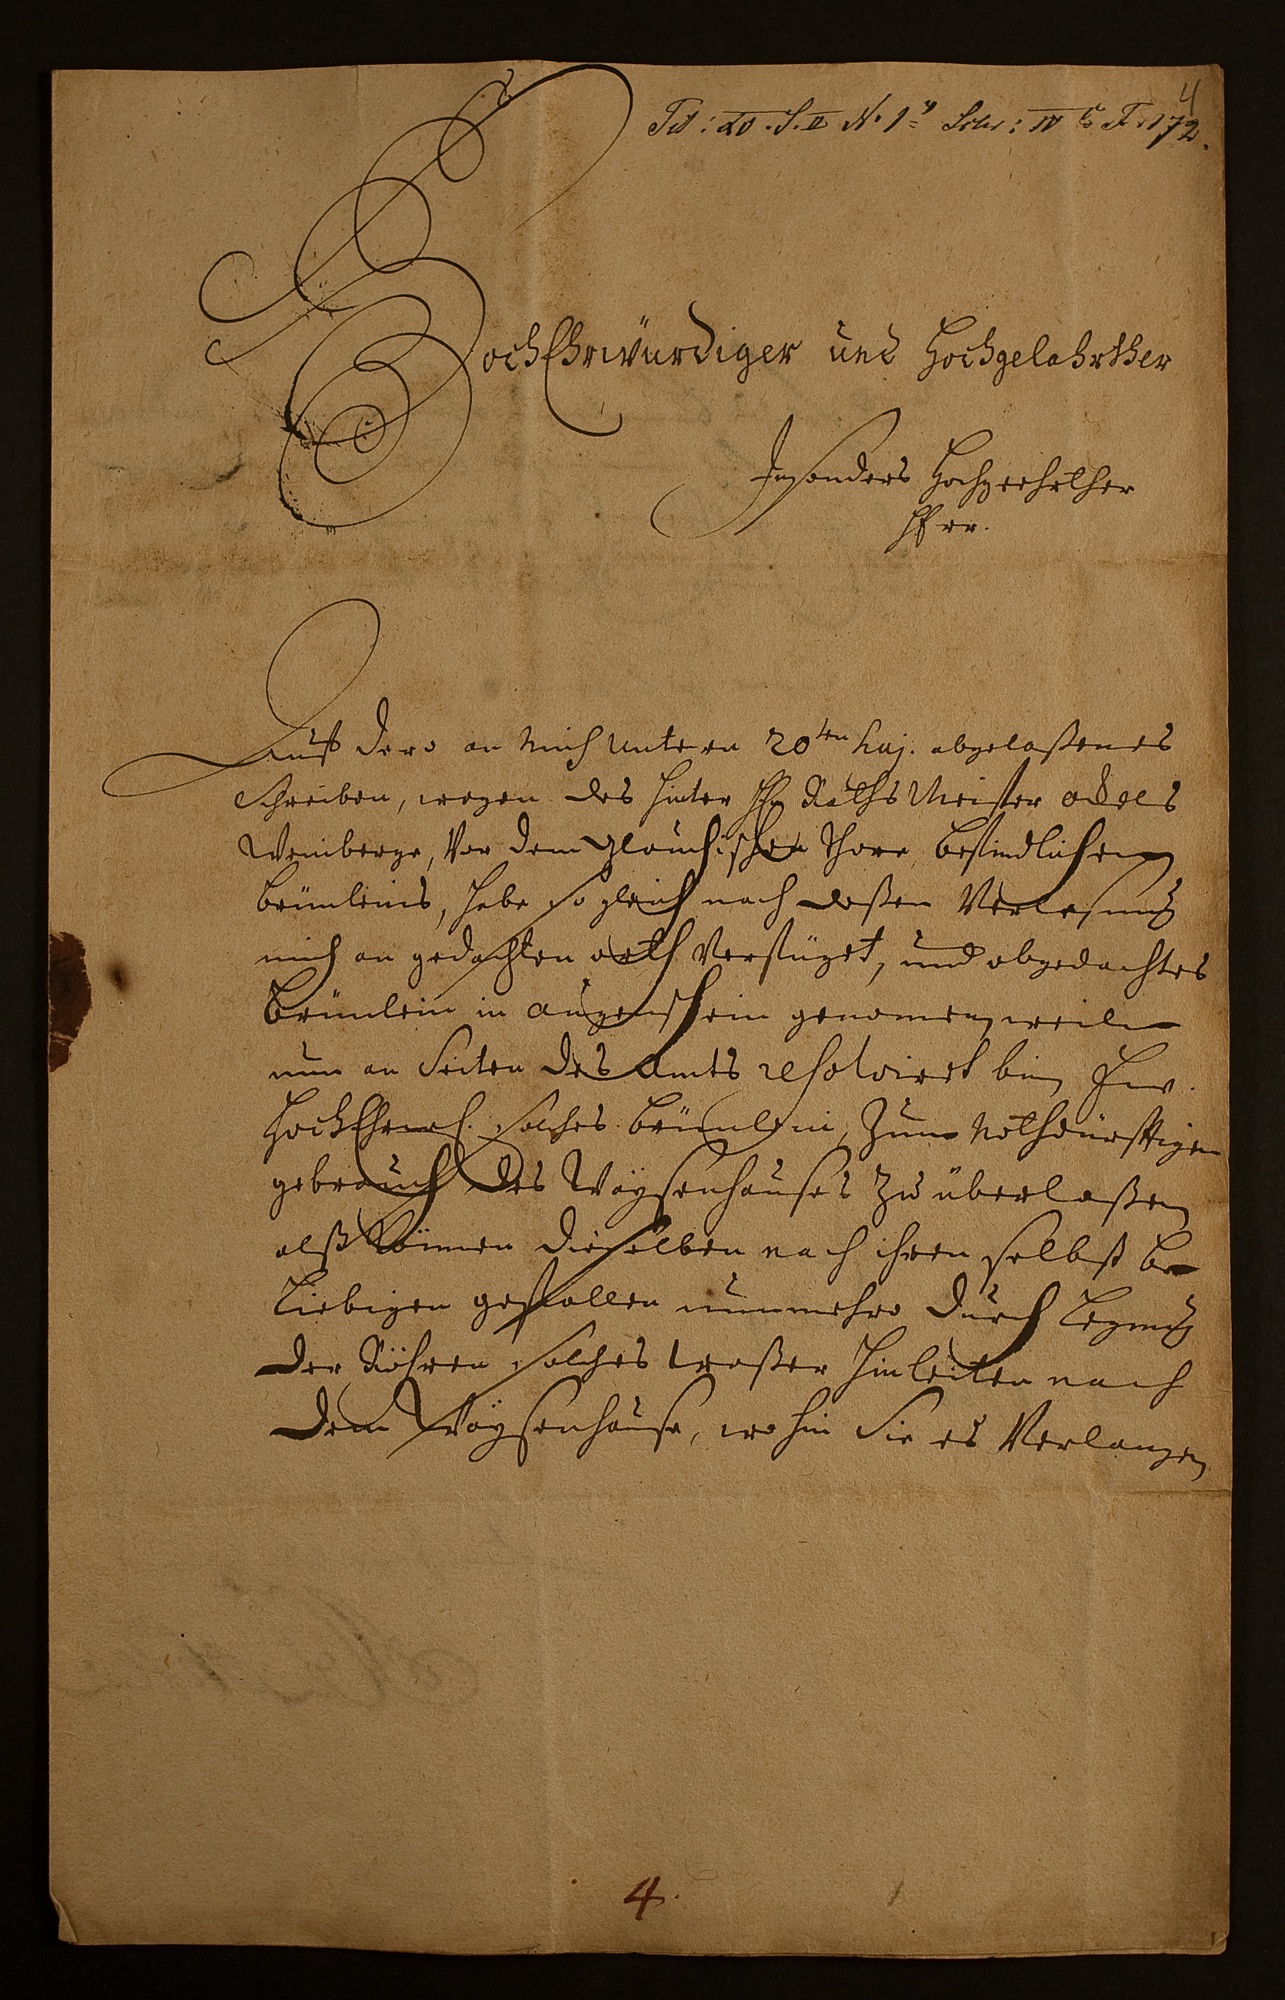 4
Tit: XV. S. II N. 1 Schr: IV F. 172.
HochEhrwürdiger und Hochgelahrther
Insonders Hochgeehrther
Herr.
Auff dero an Mich untern 20ten huj. abgelaßenes
Schreiben, wegen des hinter Hn RathsMeister
Weinberge, Vor dem Glauchischen Thore, befindlichen
brünleins, habe so gleich nach deßen Verlesung
mich an gedachten orth Verfüget, und obgedachtes
Brünlein in augenschein genomen, weiln
nun an Seiten des Amts resolviret bin, Ew.
HochEhrw. solches brünlein, Zum nothdürfftigen
gebrauch des Wäysenhauses Zu überlaßen,
alß können dieselben nach ihren selbst be
liebigen gefallen nunmehro durch Legung
der Röhren solches waßer hinleiten nach
dem Wäysenhause, wo hin Sie es Verlangen
4.